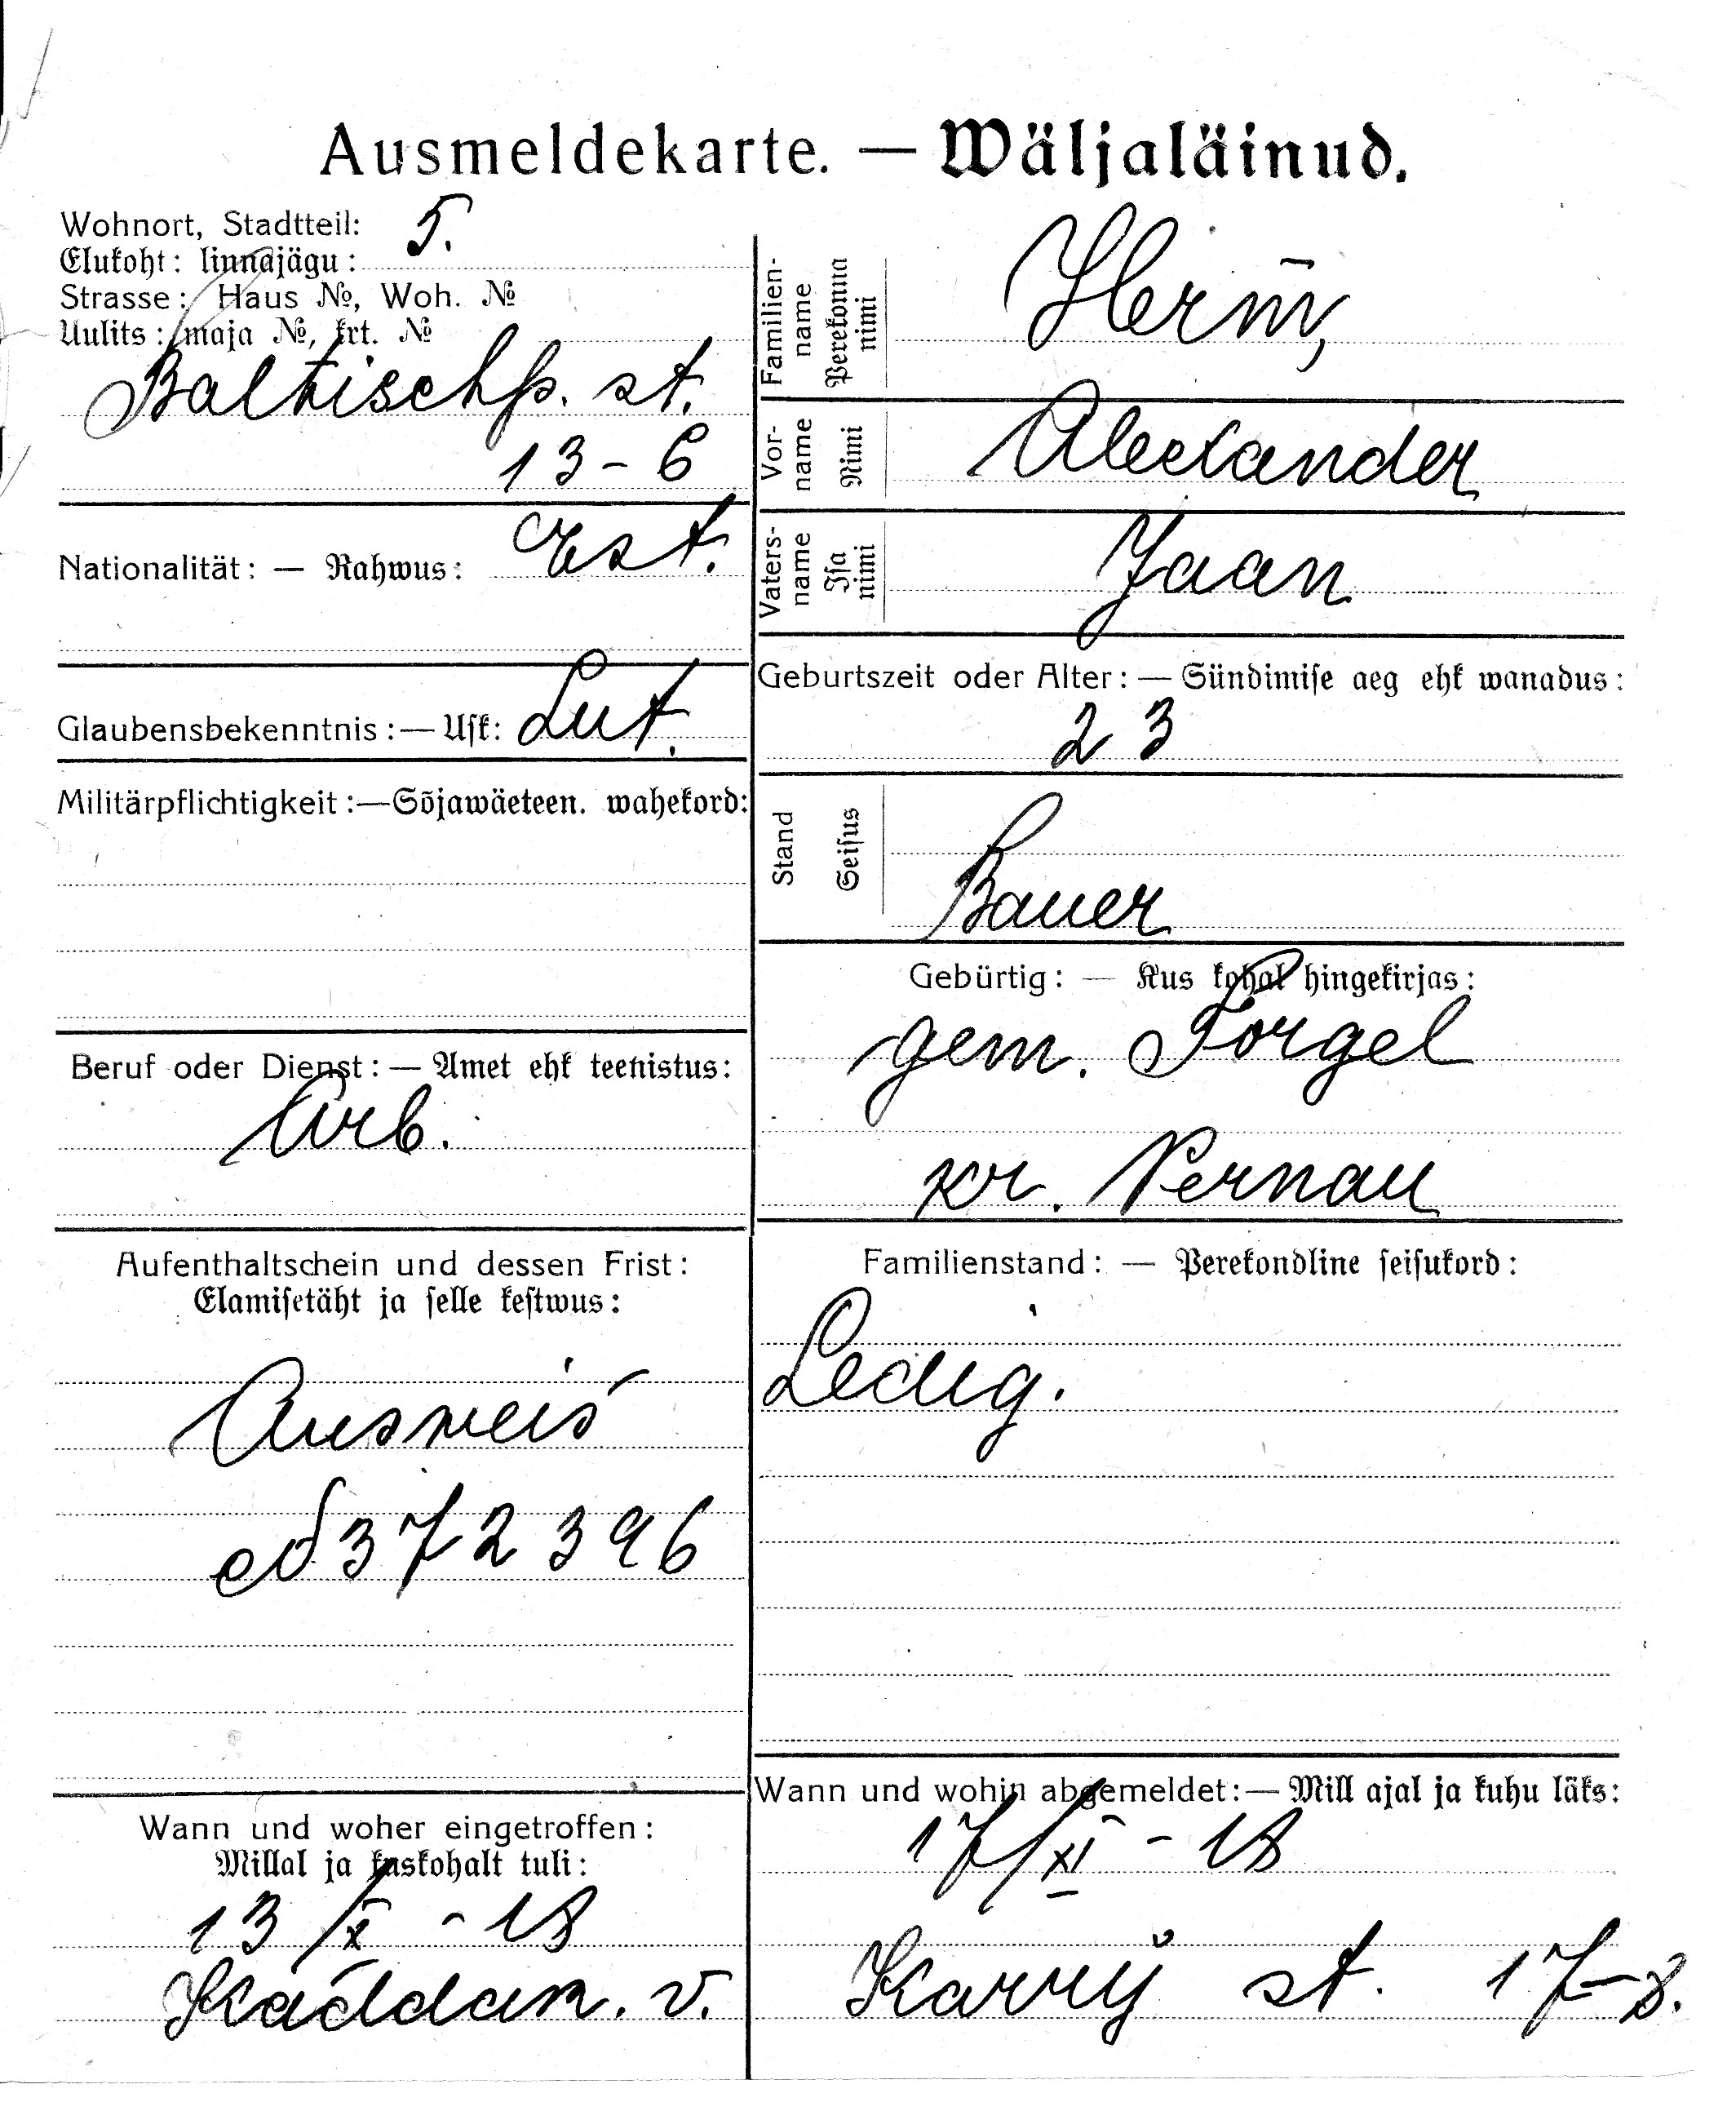 Ausmeldekarte. — Wäljaläinud.
Wohnort, Stadtteil: 5.
Elukoht: linnajägu:
Strasse: Haus №, Woh. №
Uulits: maja №, krt. №
Baltischp. st.
13-6
Nationalität: — Rahwus: Est.
Glaubensbekenntnis: — Usk: Lut.
Militärpflichtigkeit: — Sõjawäeteen. wahekord:
Beruf oder Dienst: — Amet ehk teenistus:
Arb.
Aufenthaltschein und dessen Frist:
Elamisetäht ja selle kestwus:
Ausweis
372396
Wann und woher eingetroffen:
Millal ja kuskohalt tuli:
13/X - 18
v.
Familienname Perekonna nimi
Herm,
Vorname Nimi
Alexander
Vatersname Isa nimi
Jaan
Geburtszeit oder Alter: — Sündimise aeg ehk wanadus:
23
Stand Seisus
Bauer
Gebürtig: — Kus kohal hingekirjas:
gem. Torgel
kr. Pernau
Familienstand: — Perekondline seisukord:
Ledig.
Wann und wohin abgemeldet: — Mill ajal ja kuhu läks:
17/XI - 18
st. 17-8.